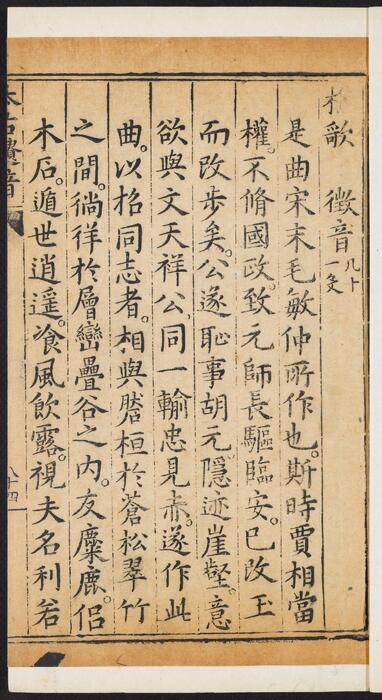 樵歌 徵音 凡十一叚
是曲宋末毛敏仲所作也。斯時賈相當
權。不脩國政。致元師長驅臨安。已改玉
而改步矣。公遂恥事胡元。隱迹崖壑。意
欲與文天祥公。同一輸忠見赤。遂作此
曲。以招同志者。相與磐桓於蒼松翠竹
之間。徜徉於層巒疊谷之内。友麋鹿。侶
木石。遁世逍遥。飡風飲露。視夫名利若
太古遺音
八十四